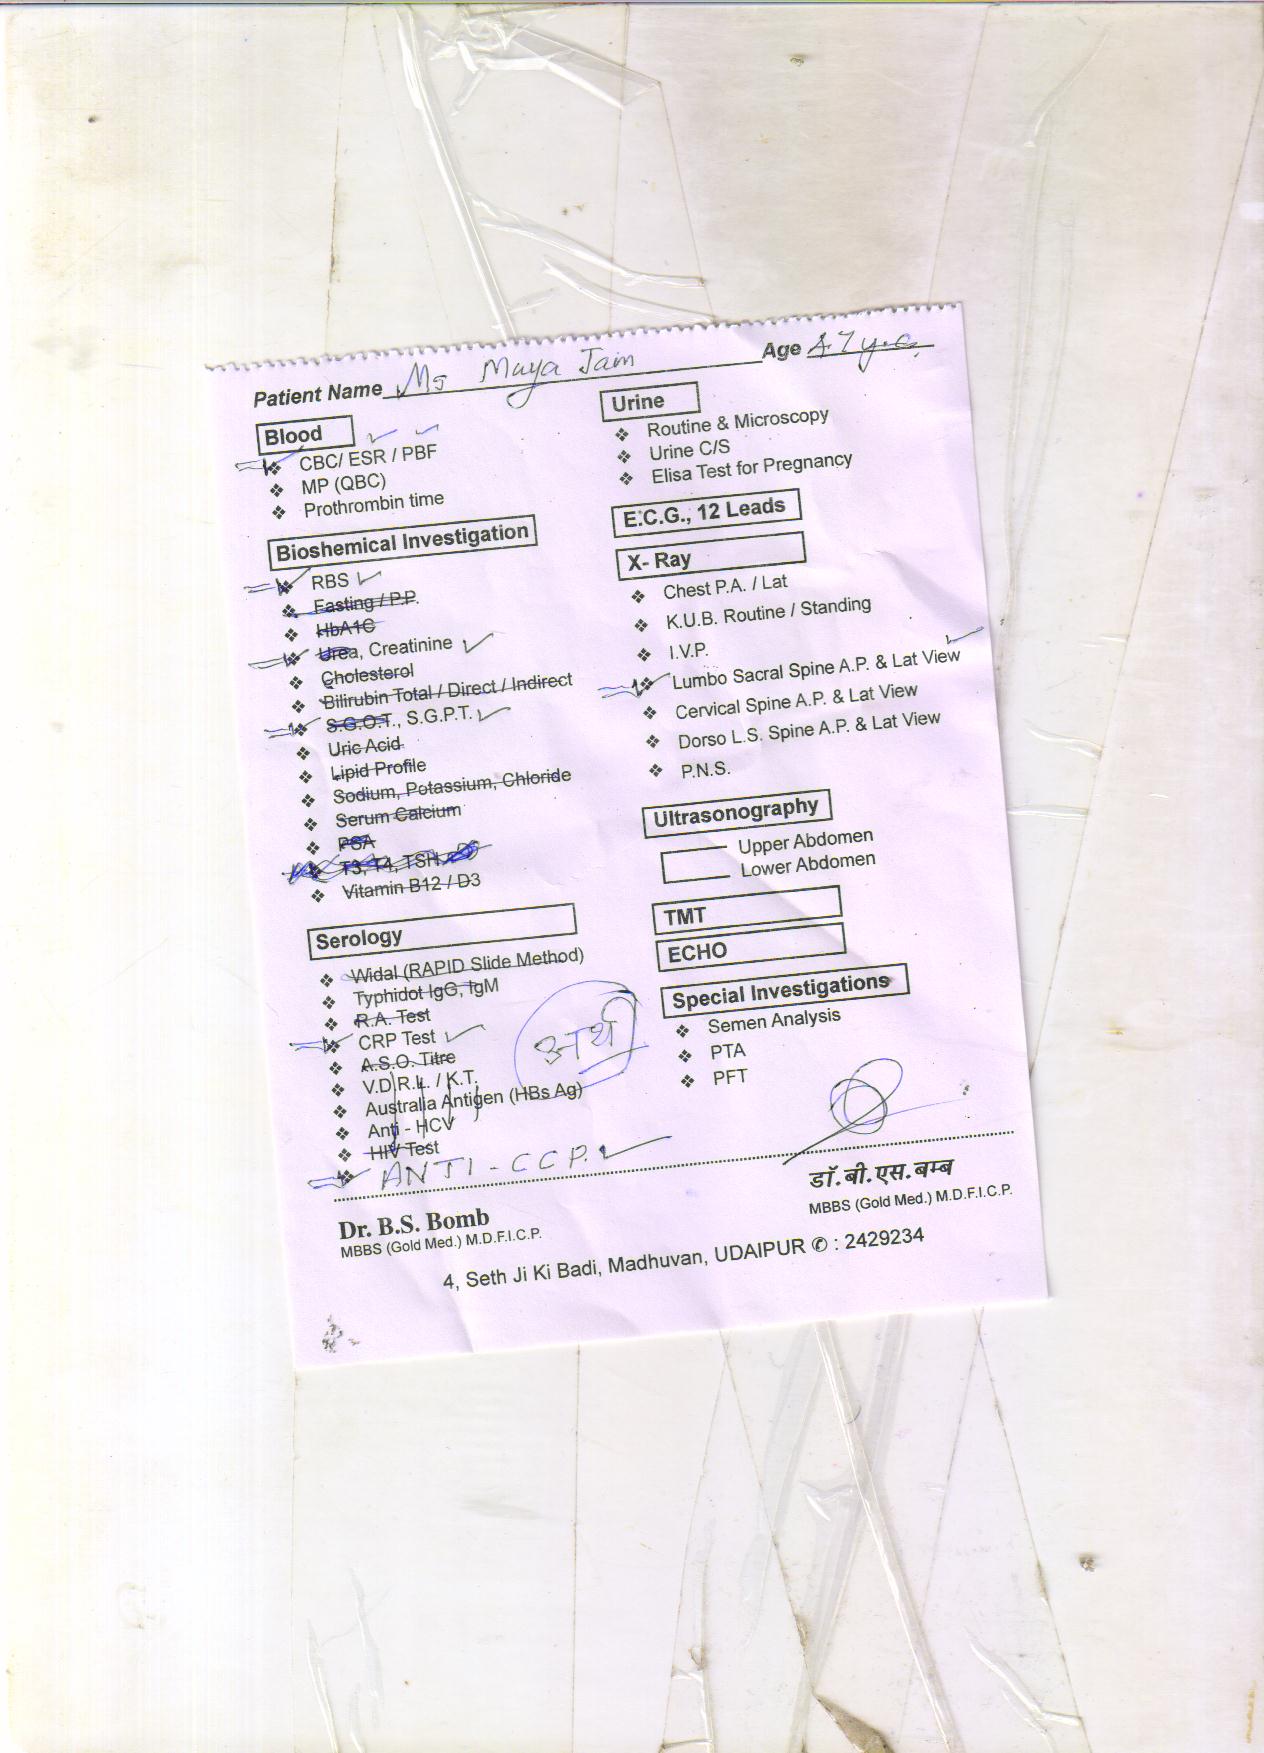 Patient Name Ms Maya Jain Age 47 yrs.
Blood
CBC/ ESR / PBF
MP (QBC)
Prothrombin time
Bioshemical Investigation
RBS
Fasting / P.P.
HbA1C
Urea, Creatinine
Cholesterol
Bilirubin Total / Direct / Indirect
S.G.O.T., S.G.P.T.
Uric Acid
Lipid Profile
Sodium, Potassium, Chloride
Serum Calcium
PSA
T3, T4, TSH
Vitamin B12 / D3
Serology
Widal (RAPID Slide Method)
Typhidot IgG, IgM
R.A. Test
CRP Test
A.S.O. Titre
V.D.R.L. / K.T.
Australia Antigen (HBs Ag)
Anti - HCV
HIV Test
ANTI - CCP.
अर्थ
Urine
Routine & Microscopy
Urine C/S
Elisa Test for Pregnancy
E.C.G., 12 Leads
X- Ray
Chest P.A. / Lat
K.U.B. Routine / Standing
I.V.P.
Lumbo Sacral Spine A.P. & Lat View
Cervical Spine A.P. & Lat View
Dorso L.S. Spine A.P. & Lat View
P.N.S.
Ultrasonography
Upper Abdomen
Lower Abdomen
TMT
ECHO
Special Investigations
Semen Analysis
PTA
PFT
Dr. B.S. Bomb
MBBS (Gold Med.) M.D.F.I.C.P.
डॉ. बी. एस. बम्ब
MBBS (Gold Med.) M.D.F.I.C.P.
4, Seth Ji Ki Badi, Madhuvan, UDAIPUR ✆ : 2429234